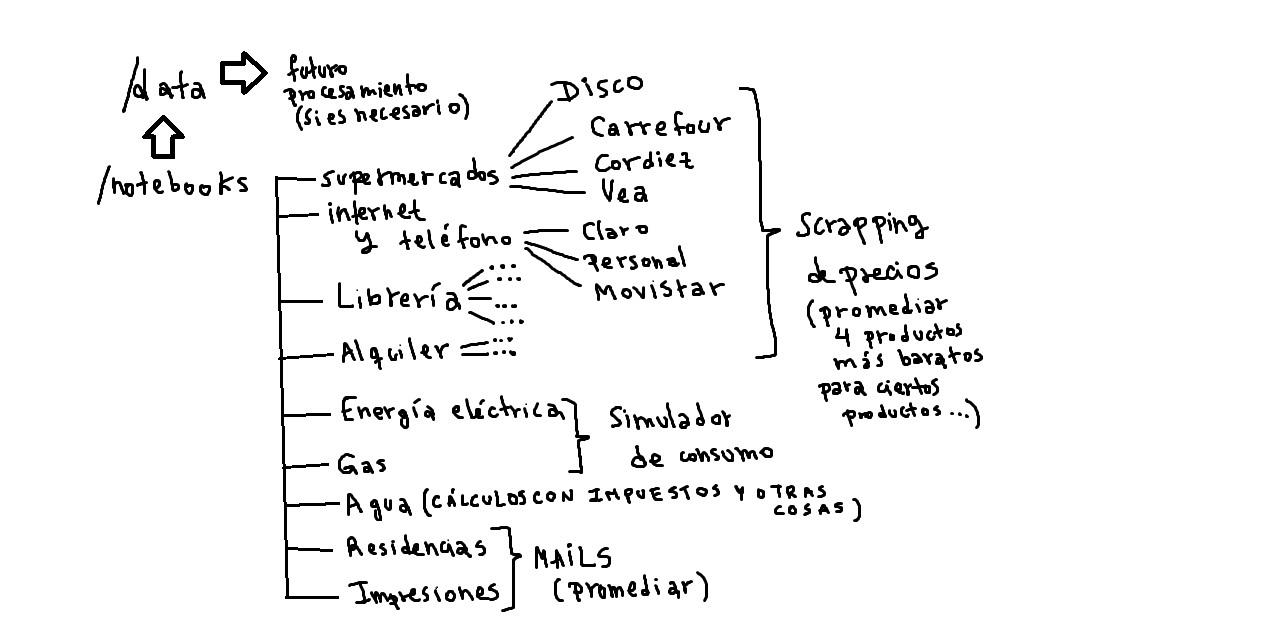 /data
futuro
procesamiento
(si es necesario)
/notebooks
supermercados
Disco
Carrefour
Cordiez
Vea
internet
y teléfono
Claro
Personal
Movistar
Librería
...
...
...
...
Alquiler
...
...
Scrapping
de precios
(promediar
4 productos
más baratos
para ciertos
productos...)
Energía eléctrica
Gas
Simulador
de consumo
Agua (CÁLCULOS CON IMPUESTOS Y OTRAS
COSAS)
Residencias
Impresiones
MAILS
(promediar)